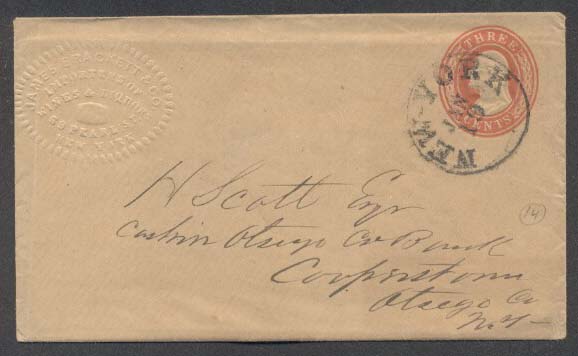 JAMES HACKETT & CO
IMPORTERS OF
WINES & LIQUORS
PEARL ST
NEW YORK
THREE
CENTS
NEW-YORK
H Scott Esqr
Cashier Otsego Co Bank
Cooperstown
Otsego Co
N.Y
14